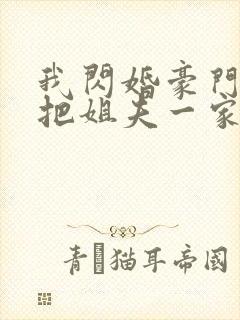 我閃婚豪門
把姐夫一家
青猫耳帝國